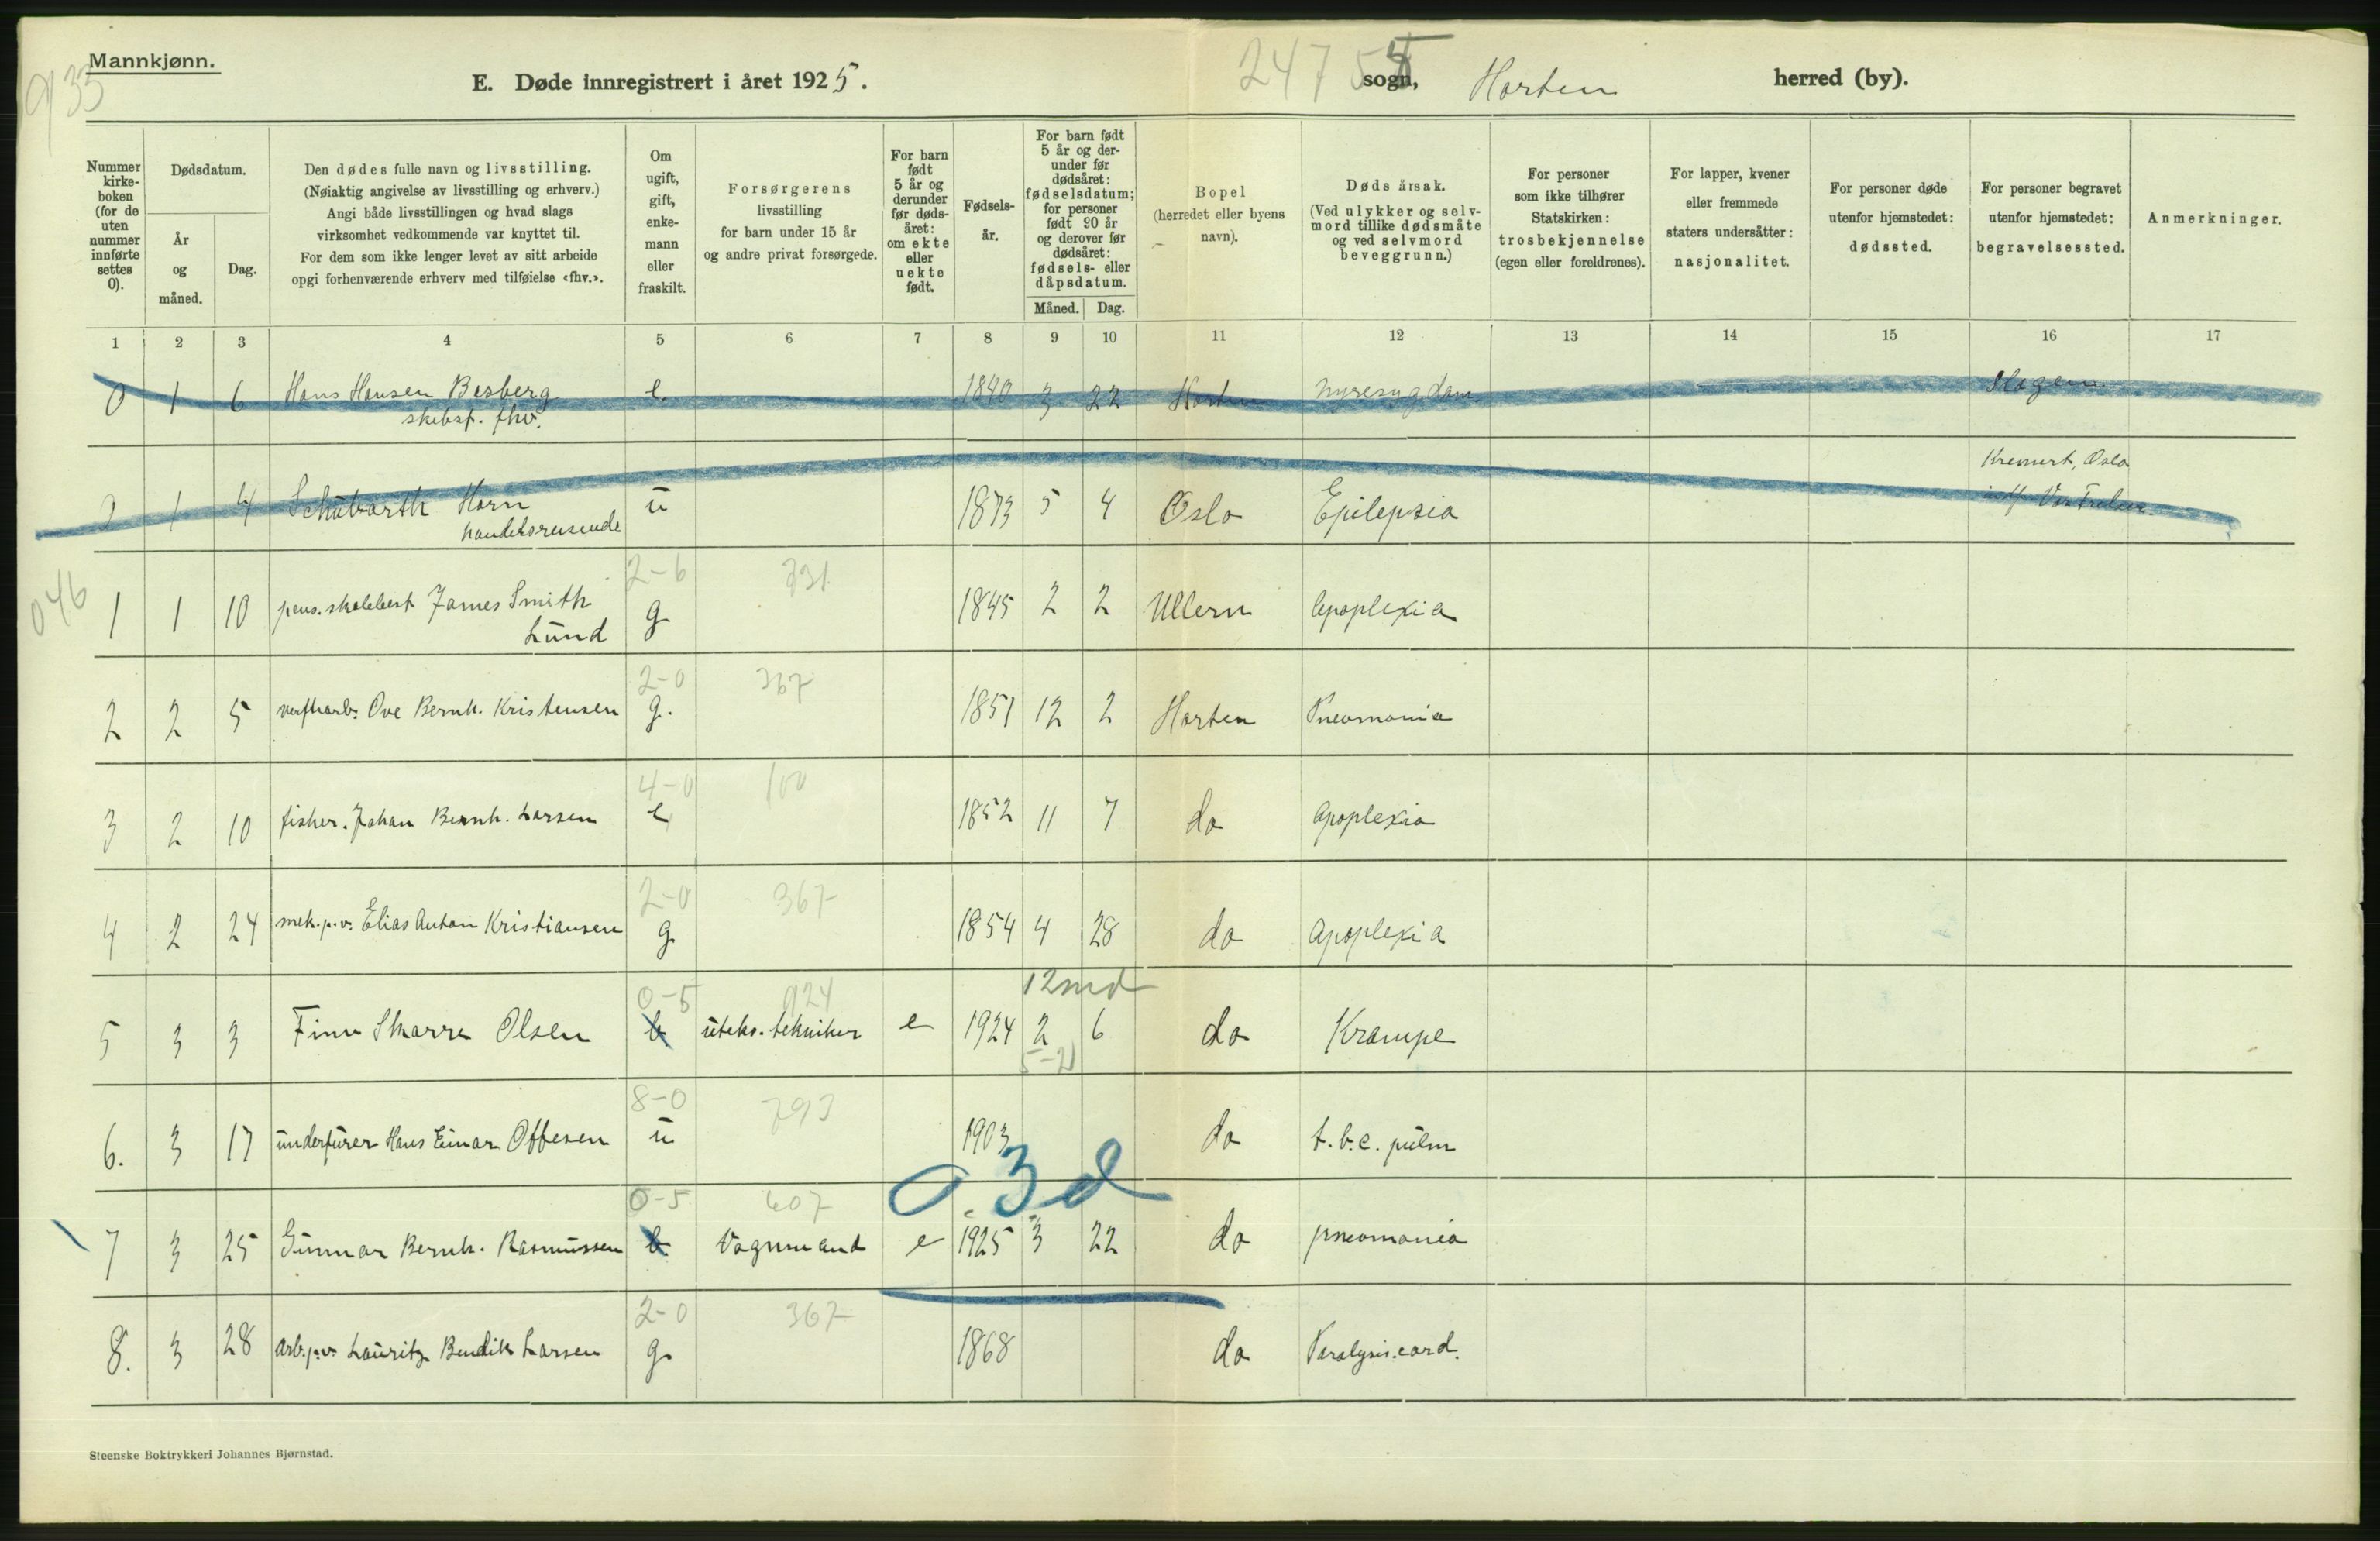 Mannkjønn.
933
E. Døde innregistrert i året 1925.
2475 sogn, Horten herred (by).
Nummer kirke- boken (for de uten nummer innførte settes 0).
Dødsdatum.
År og måned.
Dag.
Den dødes fulle navn og livsstilling.
(Nøiaktig angivelse av livsstilling og erhverv.)
Angi både livsstillingen og hvad slags
virksomhet vedkommende var knyttet til.
For dem som ikke lenger levet av sitt arbeide
opgi forhenværende erhverv med tilføielse «fhv.».
Om ugift, gift, enke- mann eller fraskilt.
Forsørgerens
livsstilling
for barn under 15 år
og andre privat forsørgede.
For barn født 5 år og derunder før døds- året: om ekte eller uekte født.
Fødsels- år.
For barn født 5 år og der- under før dødsåret: fødselsdatum; for personer født 20 år og derover før dødsåret: fødsels- eller dåpsdatum.
Måned.
Dag.
Bopel
(herredet eller byens
navn).
Dødsårsak.
(Ved ulykker og selv-
mord tillike dødsmåte
og ved selvmord
beveggrunn.)
For personer
som ikke tilhører
Statskirken:
trosbekjennelse
(egen eller foreldrenes).
For lapper, kvener
eller fremmede
staters undersåtter:
nasjonalitet.
For personer døde
utenfor hjemstedet:
dødssted.
For personer begravet
utenfor hjemstedet:
begravelsessted.
Anmerkninger.
1 2 3 4 5 6 7 8 9 10 11 12 13 14 15 16 17
0 1 6 Hans Hansen Basberg e. 1840 3 22 Horten Nyresygdom Slagen
skibsf. fhv.
Kremert, Oslo
1 4 Schubarth Horn u 1873 5 4 Oslo Epilepsia Vor Frelser.
handelsreisende
2-6 331
046
1 1 10 pens. skolebest. James Smith g 1845 2 2 Ullern Apoplexia
Lund
2-0 367
2 2 5 verftsarb. Ove Bernh. Kristensen g. 1851 12 2 Horten Pneomonia
4-0 100
3 2 10 fisker. Johan Bernh. Larsen e 1852 11 7 do Apoplexia
2-0 367
4 2 24 mek.p.v. Elias Anton Kristiansen g 1854 4 28 do Apoplexia
12 md
0-5 924
5 3 3 Finn Skarre Olsen uteks. tekniker e 1924 2 6 do Krampe
5-2
8-0 793
6. 3 17 underfurer Hans Einar Offesen u 1903 do t.b.c. pulm
0 3d
0-5 607
7 3 25 Gunnar Bernh. Rasmussen Vognmand e 1925 3 22 do pneomonia
2-0 367
8. 3 28 arb.p.v. Lauritz Bendik Larsen g. 1868 do Paralysis.card.
Steenske Boktrykkeri Johannes Bjørnstad.